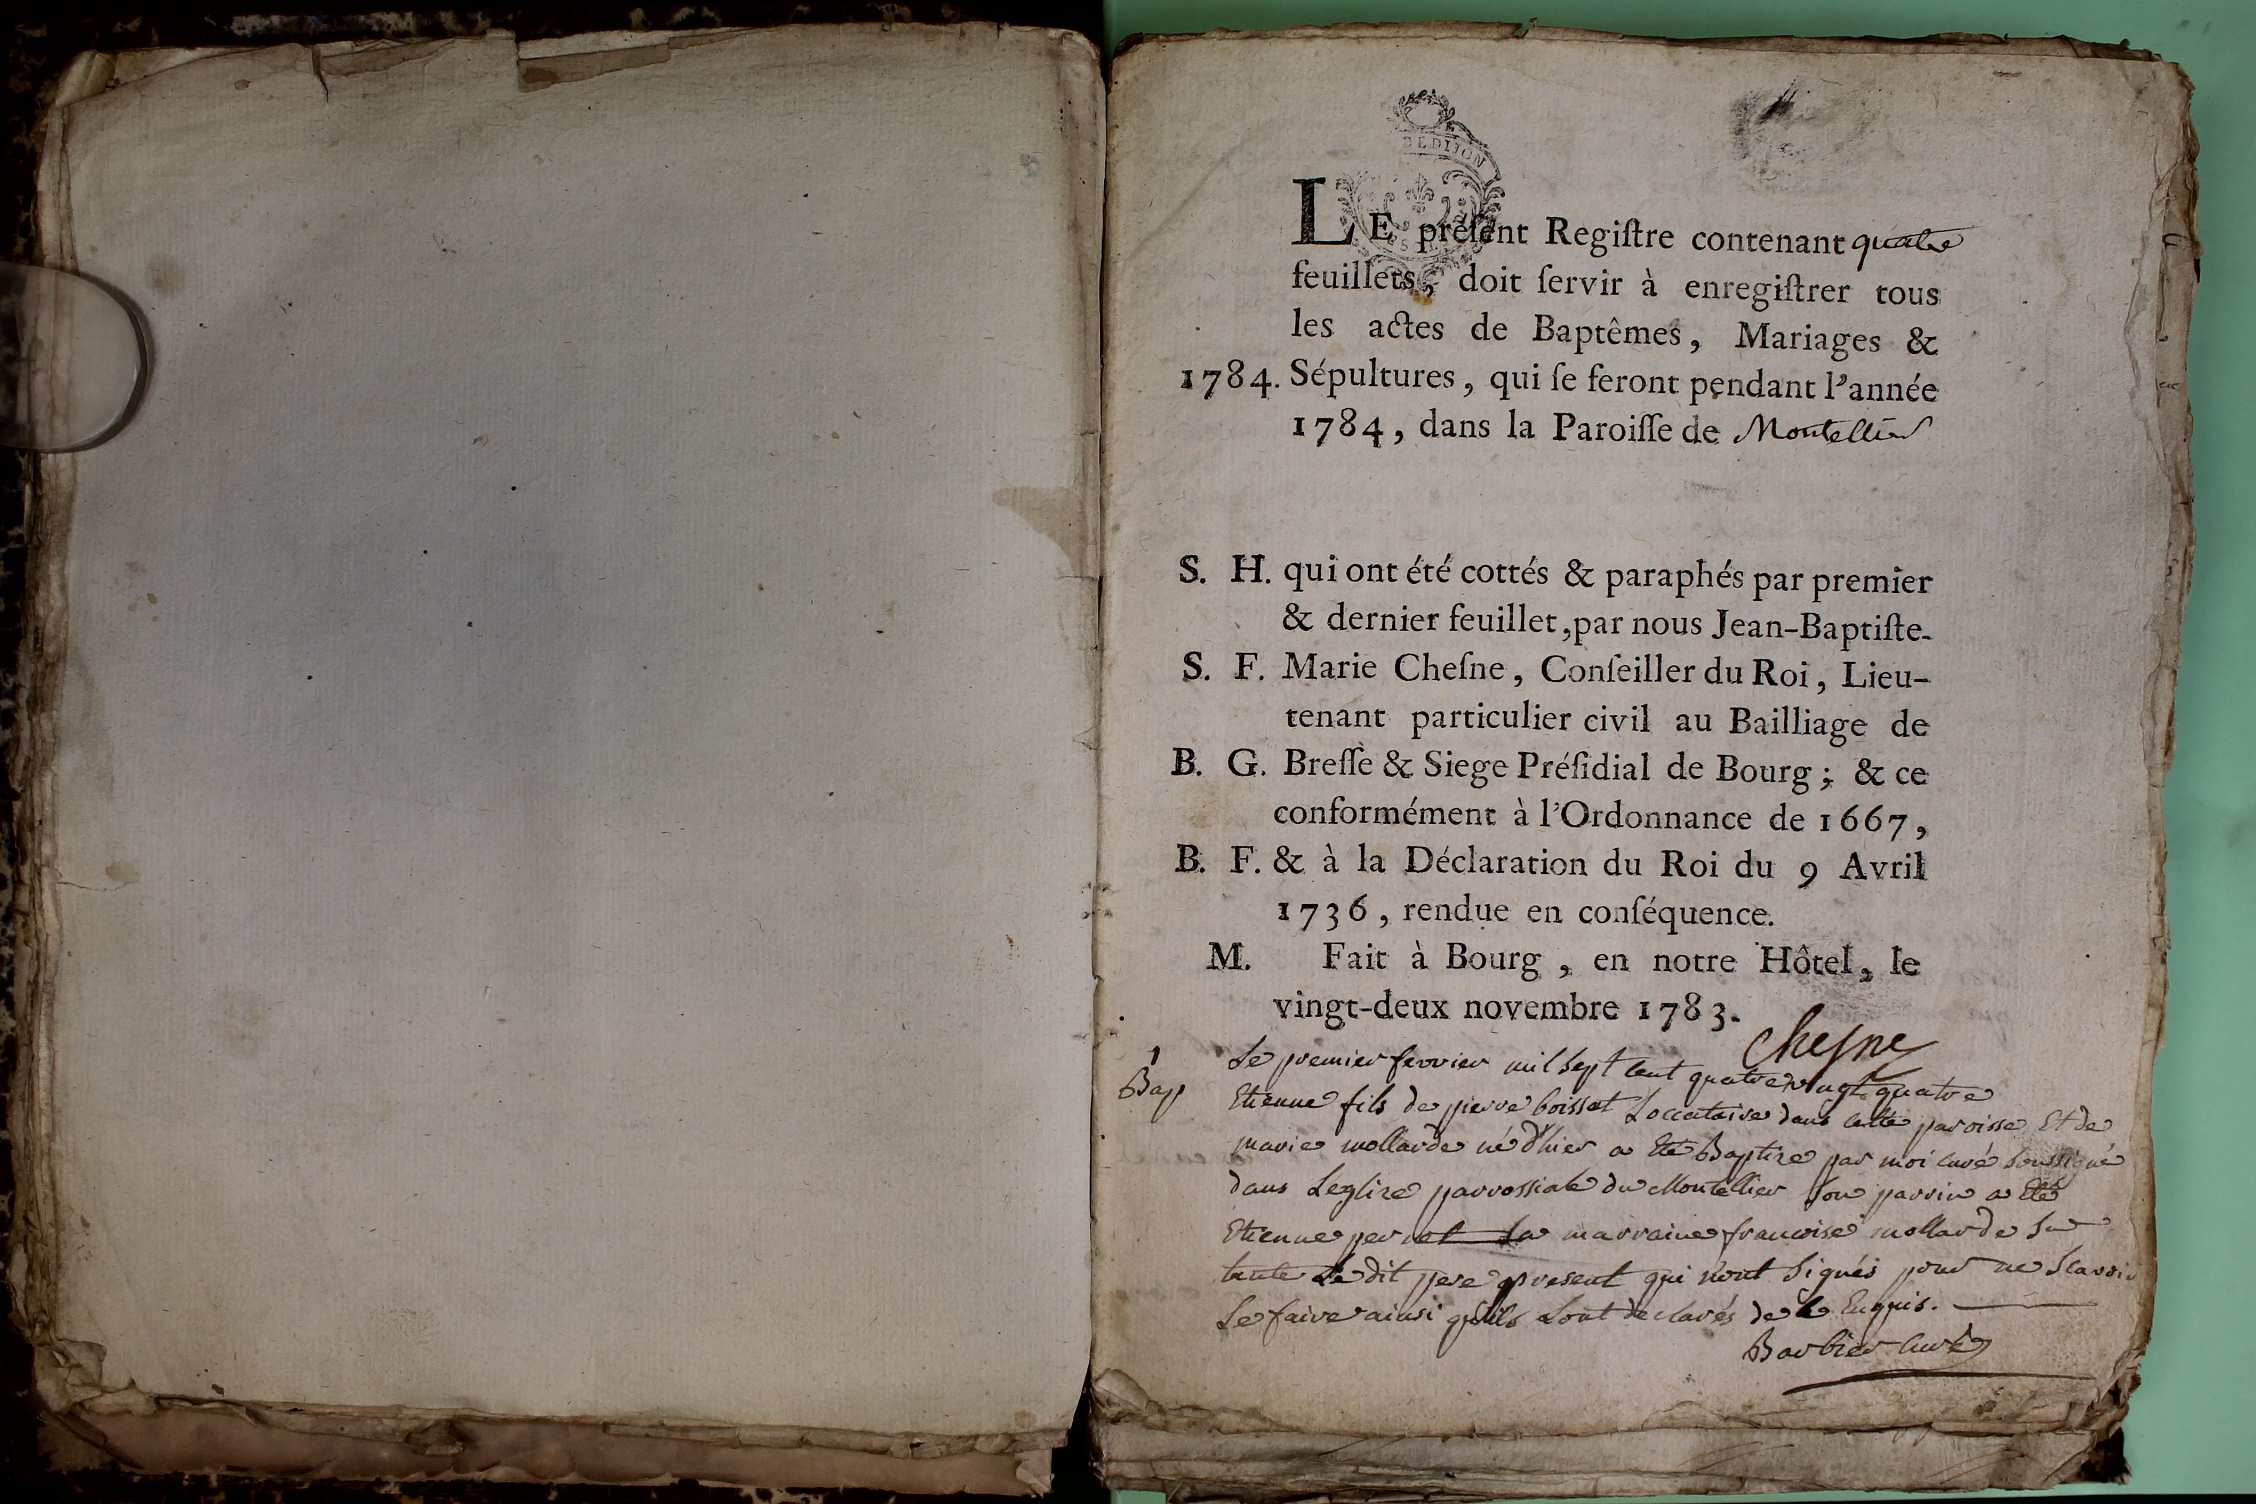 DE DIJON
LE préſent Regiſtre contenant quatre
feuillets, doit ſervir à enregiſtrer tous
les actes de Baptêmes, Mariages &
1784. Sépultures, qui ſe feront pendant l'année
1784, dans la Paroiſſe de Montellier
S. H. qui ont été cottés & paraphés par premier
& dernier feuillet, par nous Jean-Baptiſte-
S. F. Marie Cheſne, Conſeiller du Roi, Lieu-
tenant particulier civil au Bailliage de
B. G. Breſſe & Siege Préſidial de Bourg; & ce
conformément à l'Ordonnance de 1667,
B. F. & à la Déclaration du Roi du 9 Avril
1736, rendue en conſéquence.
M. Fait à Bourg, en notre Hôtel, le
vingt-deux novembre 1783.
Chesne
1 Le premier fevrier mil sept cent quatre vingt quatre
Bap Etienne fils de pierre boissat Loccataire dans cette paroisse Et de
marie mollarde né d'hier a Eté Baptize par moi curé soussigné
dans Leglize parrossiale du Montellier son parrin a Eté
Etienne pernet La marraine francoise mollarde sa
tante Le dit pere present qui n'ont signés pour ne scavoir
Le faire ainsi qu'ils Lont declarés de ce Enquis.
Barbier curé